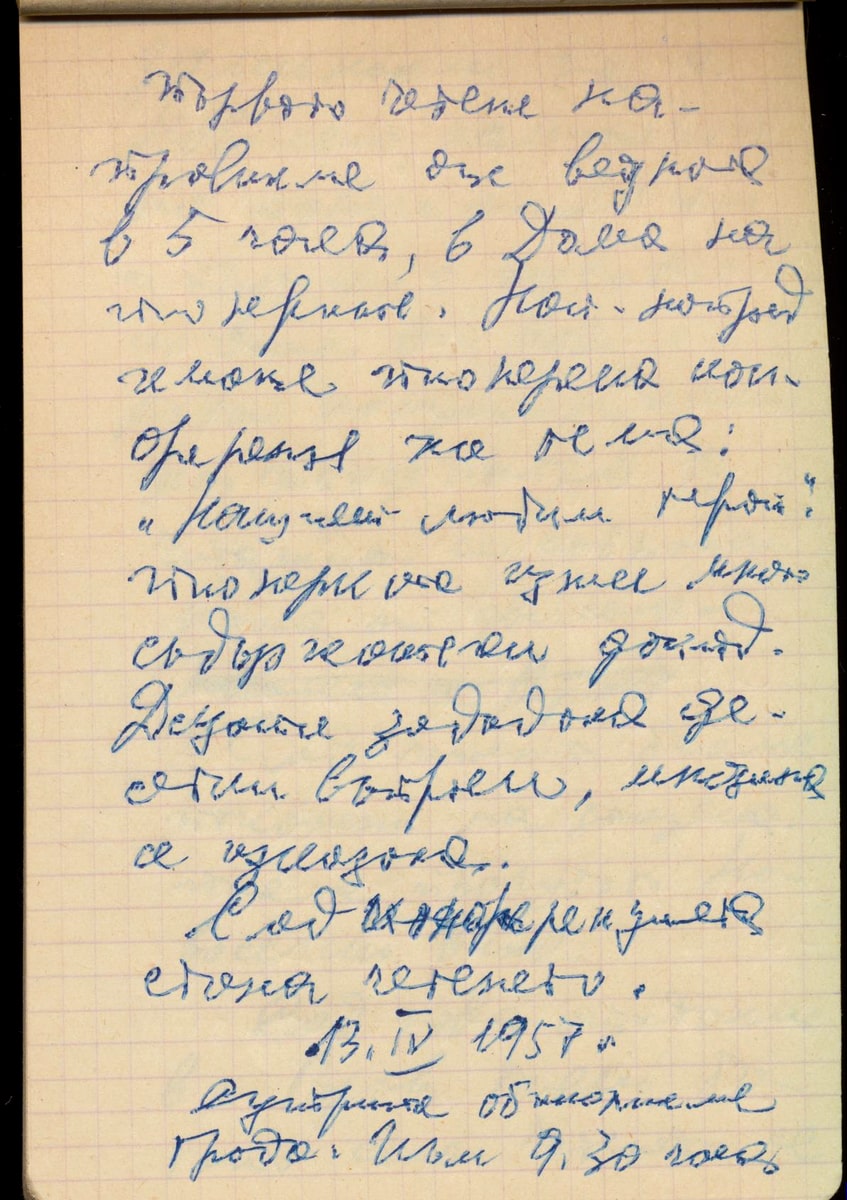 Първото четене на-
правихме още веднага
в 5 часа, в Дома на
пионерите. Най-напред
имаше пионерска кон-
ференция на тема:
„Нашият любим герой".
пионерките изнесе много
съдържателен доклад.
Децата зададоха де-
сетки въпроси, мнозина
се изказаха.
След конференцията
стана четенето.
13. IV 1957.
сутринта обиколихме
града. Към 9.30 часа